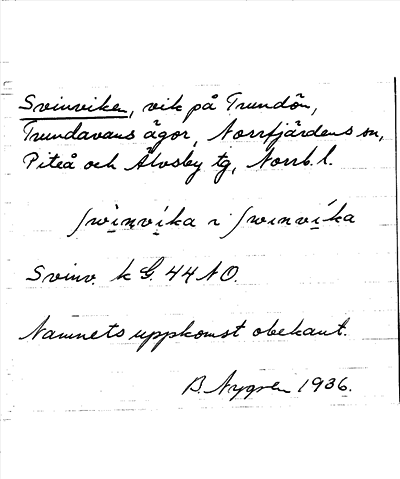 Svinviken, vik på Trundön,
Trundavans ägor, Norrfjärdens sn,
Piteå och Älvsby tg, Norrb. l.
ʃwìnvíka ~ ʃwınvíka
Svinv. k G. 44 NO.
Namnets uppkomst obekant.
B. Nygren 1936.